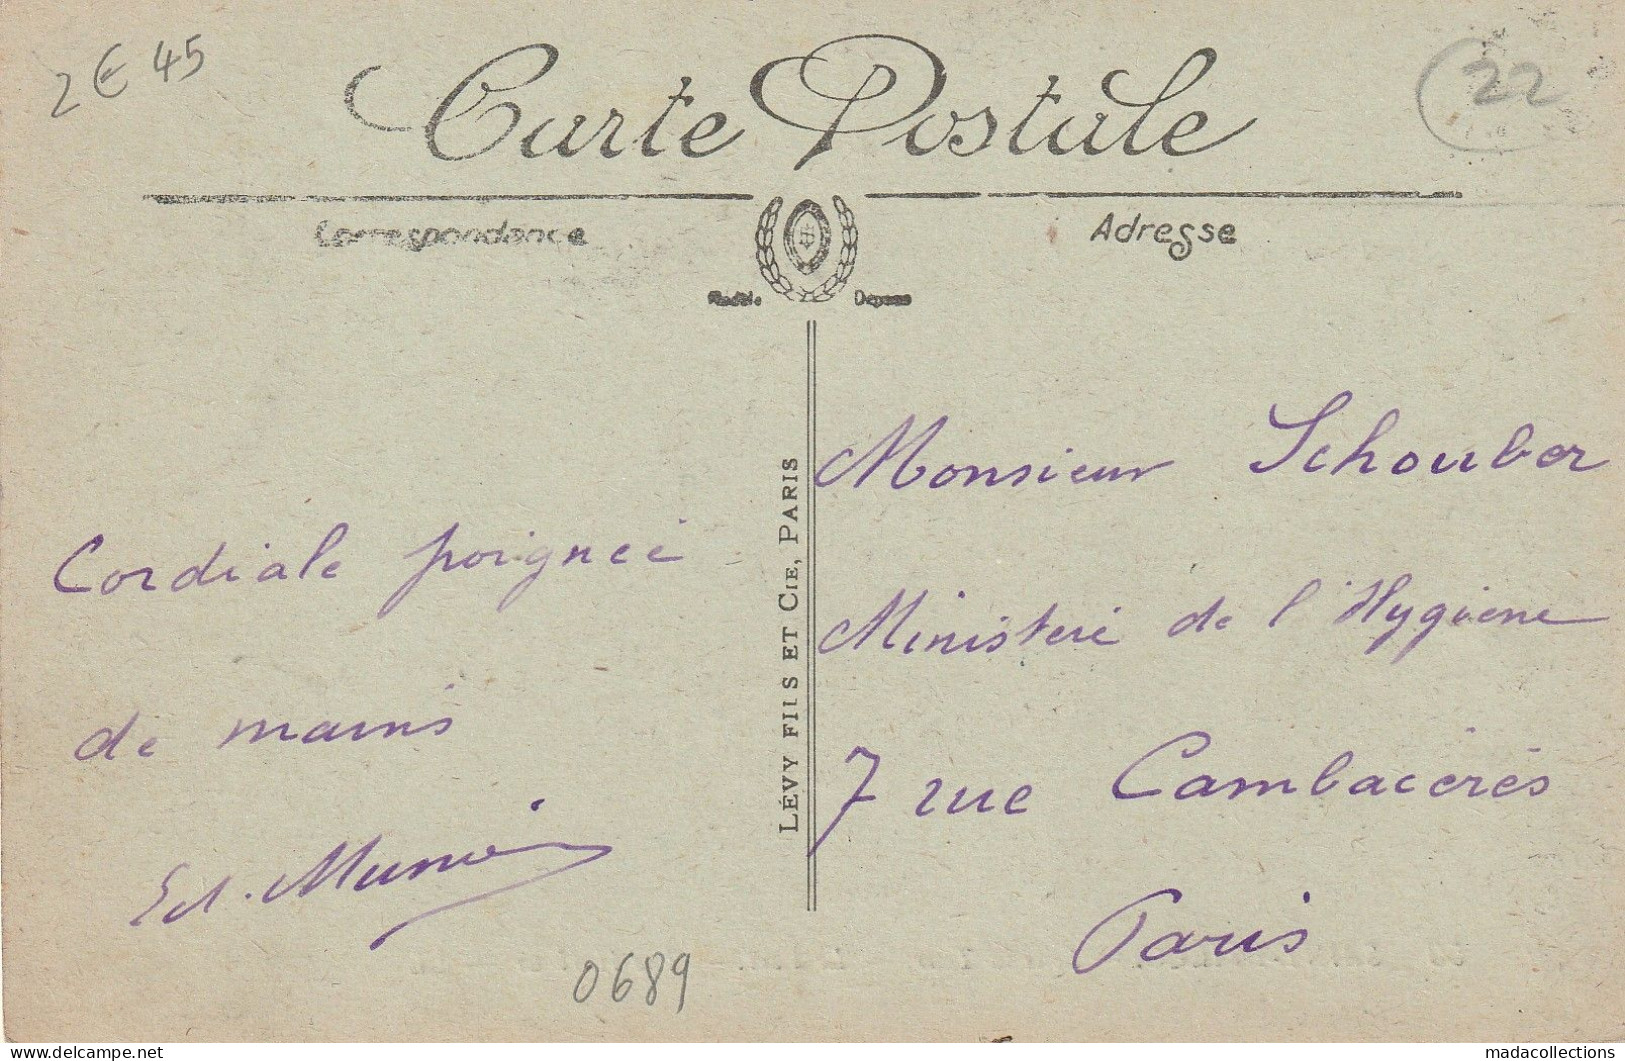 2€45
22
Carte Postale
Correspondance
Adresse
Modèle Déposé
LÉVY FILS ET CIE, PARIS
Monsieur Schouber
Cordiale poignée
Ministère de l'Hygiène
de mains
7 rue Cambacérès
Ed. Munié
Paris
0689
delcampe.net
madacollections